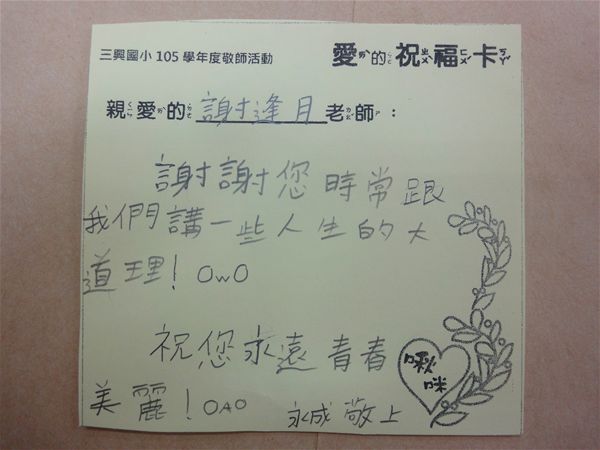 三興國小 105 學年度敬師活動
愛的祝福卡
親愛的 謝逢月 老師：
謝謝您時常跟
我們講一些人生的大
道理！OwO
祝您永遠青春
美麗！OAO
啾咪
永成 敬上